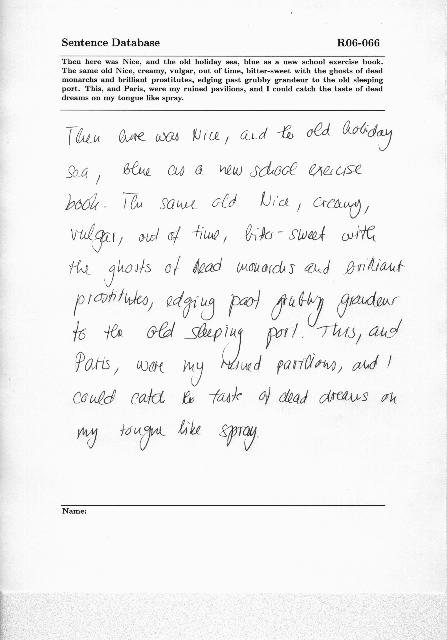 Sentence Database R06-066
Then here was Nice, and the old holiday sea, blue as a new school exercise book.
The same old Nice, creamy, vulgar, out of time, bitter-sweet with the ghosts of dead
monarchs and brilliant prostitutes, edging past grubby grandeur to the old sleeping
port. This, and Paris, were my ruined pavilions, and I could catch the taste of dead
dreams on my tongue like spray.
Then here was Nice, and the old holiday
sea, blue as a new school exercise
book. The same old Nice, creamy,
vulgar, out of time, bitter-sweet with
the ghosts of dead monarchs and brilliant
prostitutes, edging past grubby grandeur
to the old sleeping port. This, and
Paris, were my ruined pavilions, and I
could catch the taste of dead dreams on
my tongue like spray.
Name: